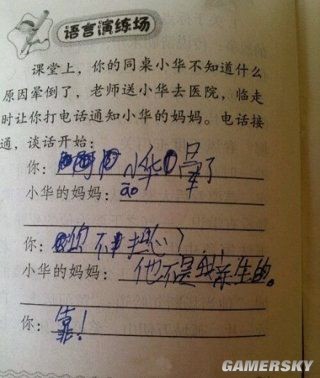 语言演练场
课堂上，你的同桌小华不知道什么
原因晕倒了，老师送小华去医院，临走
时让你打电话通知小华的妈妈。电话接
通，谈话开始：
你：阿阿 小华晕了
小华的妈妈：哦
你：你不担心？
小华的妈妈：他不是我亲生的。
你：靠！
GAMERSKY